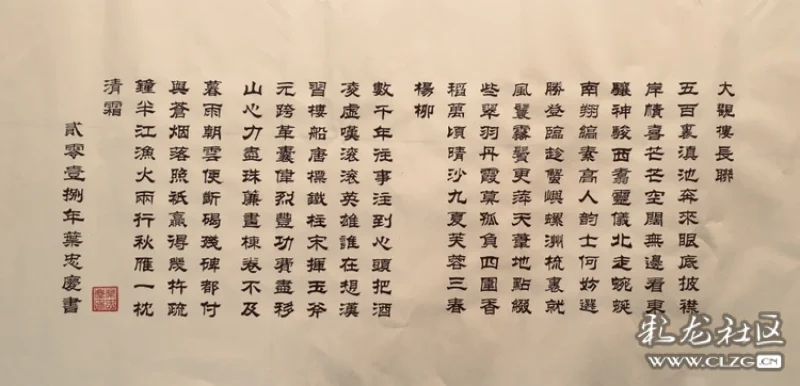 大觀樓長聯
五百裏滇池奔來眼底披襟
岸幘喜芒芒空闊無邊看東
驤神駿西翥靈儀北走蜿蜒
南翔縞素高人韵士何妨選
勝登臨趁蟹嶼螺洲梳裏就
風鬟霧鬢更萍天葦地點綴
些翠羽丹霞莫孤負四圍香
稻萬頃晴沙九夏芙蓉三春
楊柳
數千年往事注到心頭把酒
凌虛嘆滚滚英雄誰在想漢
習樓船唐標鐵柱宋揮玉斧
元跨革囊偉烈豐功費盡移
山心力盡珠簾畫棟卷不及
暮雨朝雲便斷碣殘碑都付
與蒼烟落照祇贏得幾杵疏
鐘半江漁火兩行秋雁一枕
清霜
貳零壹捌年葉忠慶書
彩龙社区
WWW.CLZG.CN